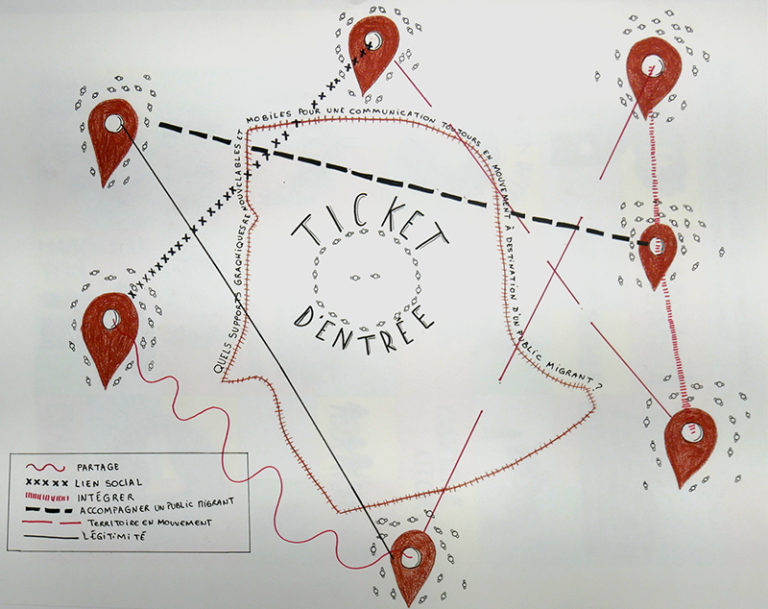 QUELS SUPPORTS GRAPHIQUES RENOUVELABLES ET
MOBILES POUR UNE COMMUNICATION TOUJOURS EN MOUVEMENT À DESTINATION D'UN PUBLIC MIGRANT ?
TICKET
DENTRÉE
PARTAGE
LIEN SOCIAL
INTÉGRER
ACCOMPAGNER UN PUBLIC MIGRANT
TERRITOIRE EN MOUVEMENT
LÉGITIMITÉ